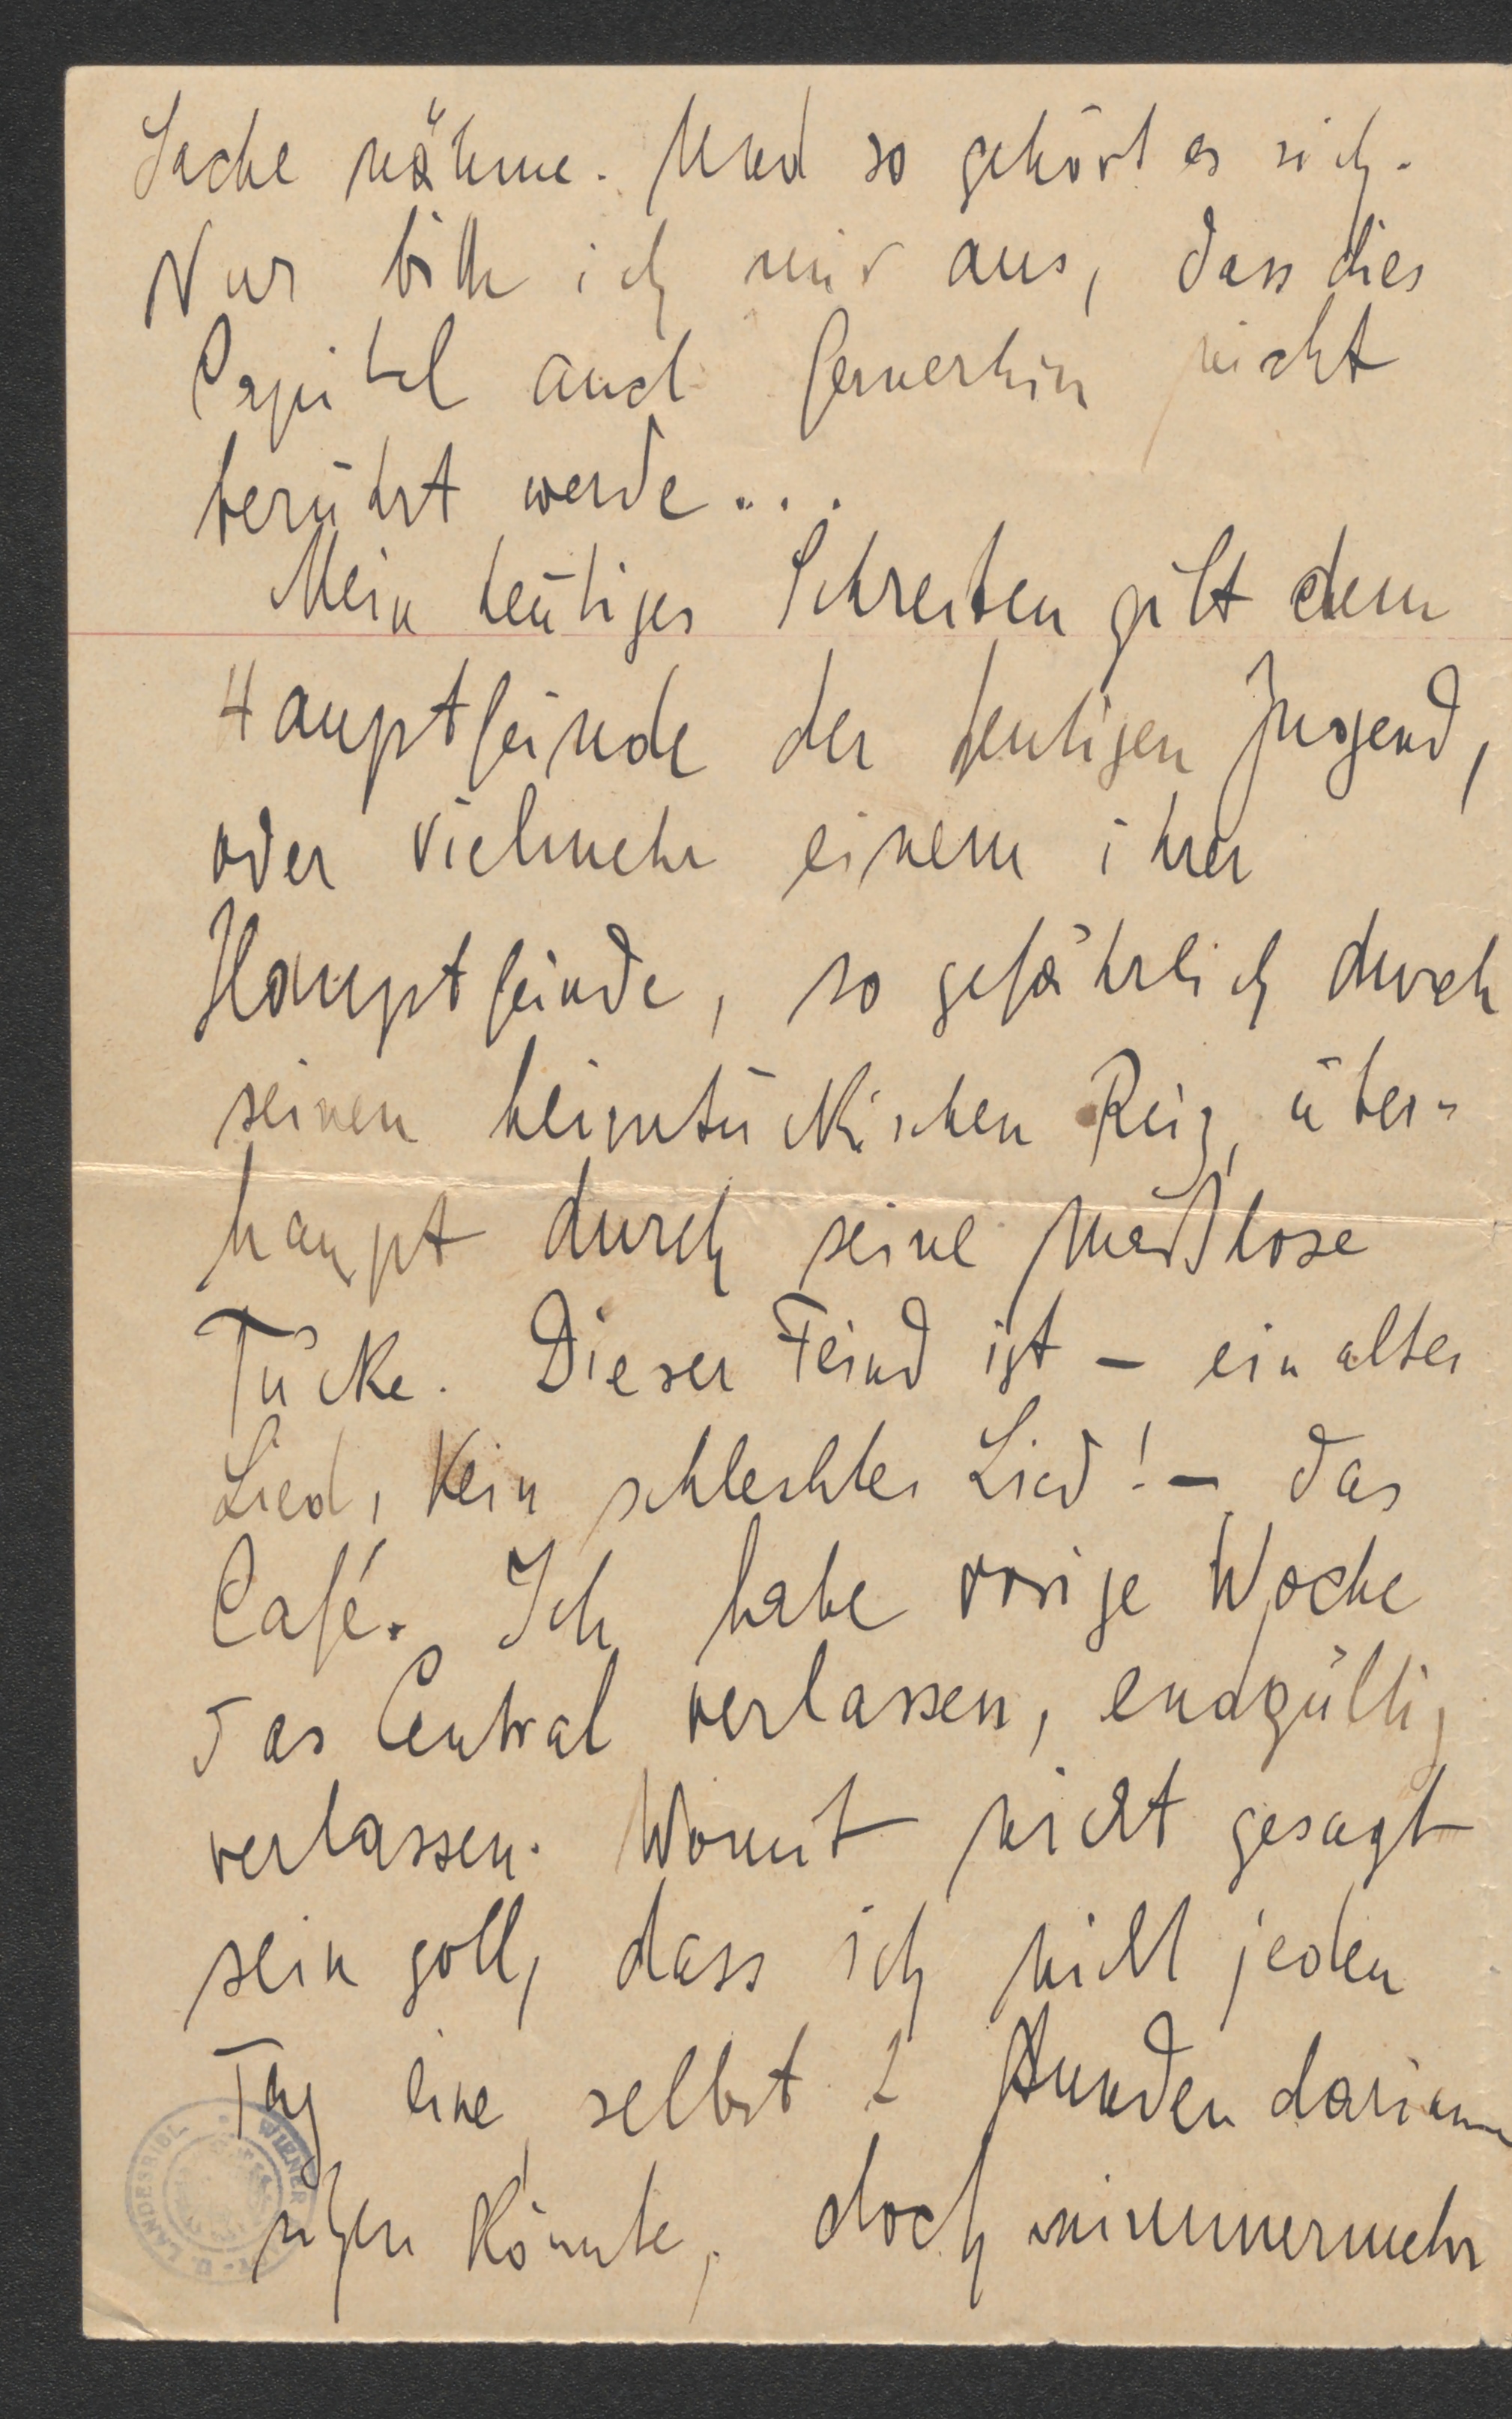 Sache nähme. Und so gehört es sich.
Nur bitte ich mir aus, dass dies
Capitel auch fernerhin nicht
berührt werde...
Mein heutiges Schreiben gilt dem
Hauptfeinde der heutigen Jugend,
oder vielmehr einem ihrer
Hauptfeinde, so gefährlich durch
seinen heimtückischen Reiz, über-
haupt durch seine maßlose
Tücke. Dieser Feind ist – ein altes
Lied, kein schlechtes Lied! – das
Café. Ich habe vorige Woche
das Central verlassen, endgültig
verlassen. Womit nicht gesagt
sein soll, dass ich nicht jeden
Tag eine, selbst 2 Stunden darinnen
sitzen könnte, doch nimmermehr
WIENER
LANDESBIBL.